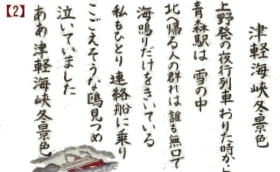 【2】
津軽海峡冬景色
上野発の夜行列車 おりた時から
青森駅は 雪の中
北へ帰る人の群れは 誰も無口で
海鳴りだけを きいている
私もひとり 連絡船に乗り
こごえそうな鴎見つめ
泣いていました
ああ 津軽海峡冬景色